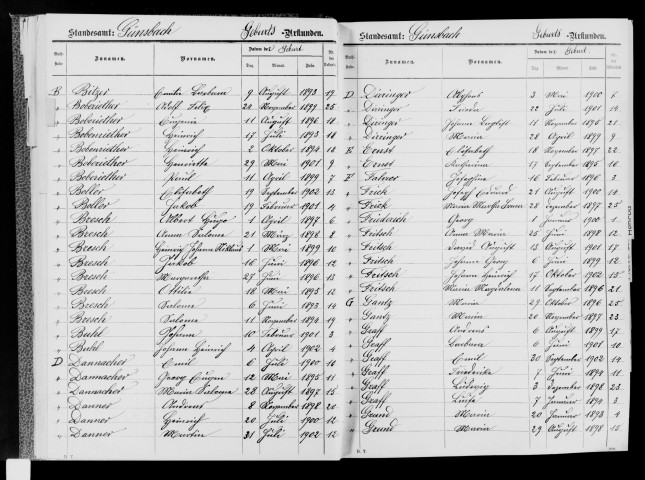 Standesamt: Günsbach Geburts-Urkunden.
Zunamen. Vornamen. Datum der Geburt Tag Monat Jahr
B Bilger 9 August 1893 19
" Boberiether Adolf Felix 24 November 1899 25
" Boberiether Eugenie 11 August 1896 18
" Bobenriether Heinrich 17 Juli 1893 18
" Bobenriether Heinrich 2 Oktober 1894 18
" Boberiether Henriette 29 Mai 1901 9
" Boberiether Emil 11 April 1899 7
" Boller Elisabeth 19 September 1902 13
" Boller Jakob 19 Februar 1901 4
" Bresch Albert Hugo 1 April 1897 6
" Bresch Anna Salome 21 März 1896 8
" Bresch Heinrich Johann 1 Mai 1899 10
" Bresch Jakob 16 Juni 1896 12
" Bresch Margaretha 27 Juni 1896 13
" Bresch Ottilie 18 Mai 1895 12
" Bresch Salome 6 Juni 1893 14
" Bresch Salome 11 November 1894 19
" Buhl Johann 10 Februar 1901 3
" Buhl Johann Heinrich 4 April 1902 4
D Dannacher Emil 6 Juli 1900 10
" Dannacher Georg Eugen 12 Mai 1895 11
" Dannacher Maria Salome 28 August 1897 15
" Danner Andreas 8 November 1898 20
" Danner Heinrich 20 Juli 1900 12
" Danner Martin 31 Juli 1902 12
Standesamt: Günsbach Geburts-Urkunden.
Zunamen. Vornamen. Datum der Geburt. Tag Monat Jahr
D Diringer Alfons 3 Mai 1900 6
" Diringer 22 Juli 1901 14
" Diringer Johann Baptist 11 November 1895 21
" Diringer Maria 28 April 1899 9
E Ernst Elisabeth 18 November 1897 22
" Ernst Katharina 17 September 1895 16
F Josephine 16 Februar 1896 3
" Frick Johann Eduard 21 August 1900 14
" Frick Maria Martha 28 Dezember 1897 25
" Friderich Georg 1 Januar 1900 1
" Fritsch Anna Maria 25 Juni 1898 12
" Fritsch David August 18 August 1901 17
" Fritsch Johann Georg 6 Juni 1899 12
" Fritsch Johann Heinrich 17 Oktober 1902 15
" Fritsch Maria Magdalena 11 September 1896 21
G Gantz Maria 29 Oktober 1896 25
" Gantz Maria 20 November 1897 23
" Graff Andreas 6 August 1899 17
" Graff Barbara 6 Juni 1901 10
" Graff Emil 30 September 1902 14
" Graff Friederika 7 Juni 1894 11
" Graff Ludwig 3 Dezember 1898 23
" Graff Luise 7 Januar 1894 3
" Grund Maria 20 Januar 1893 4
" Grund Maria 29 August 1898 15